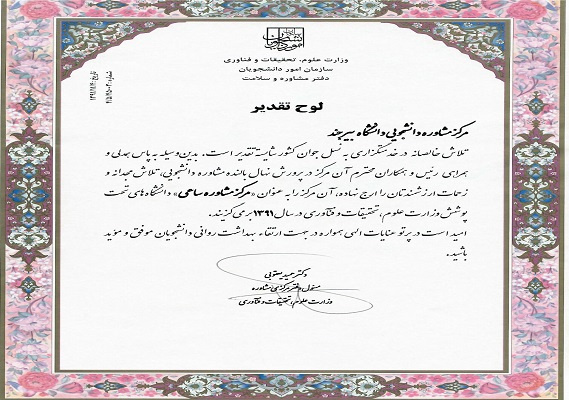 وزارت علوم، تحقیقات و فناوری
سازمان امور دانشجویان
دفتر مشاوره و سلامت
لوح تقدیر
مرکز مشاوره دانشجویی دانشگاه بیرجند
تلاش خالصانه در خدمتگزاری به نسل جوان کشور شایسته تقدیر است. بدین وسیله به پاس همدلی و
همراهی رئیس و همکاران محترم آن مرکز در پرورش نهال بالنده مشاوره دانشجویی، تلاش مجدانه و
زحمات ارزشمندتان را ارج نهاده، آن مرکز را به عنوان «مرکز مشاوره ساعی» دانشگاه های تحت
پوشش وزارت علوم، تحقیقات و فناوری در سال ۱۳۹۱ برمی گزیند.
امید است در پرتو عنایات الهی همواره در جهت ارتقاء بهداشت روانی دانشجویان موفق و مؤید
باشید.
دکتر حمید یعقوبی
مسئول دفتر مرکزی مشاوره
وزارت علوم، تحقیقات و فناوری